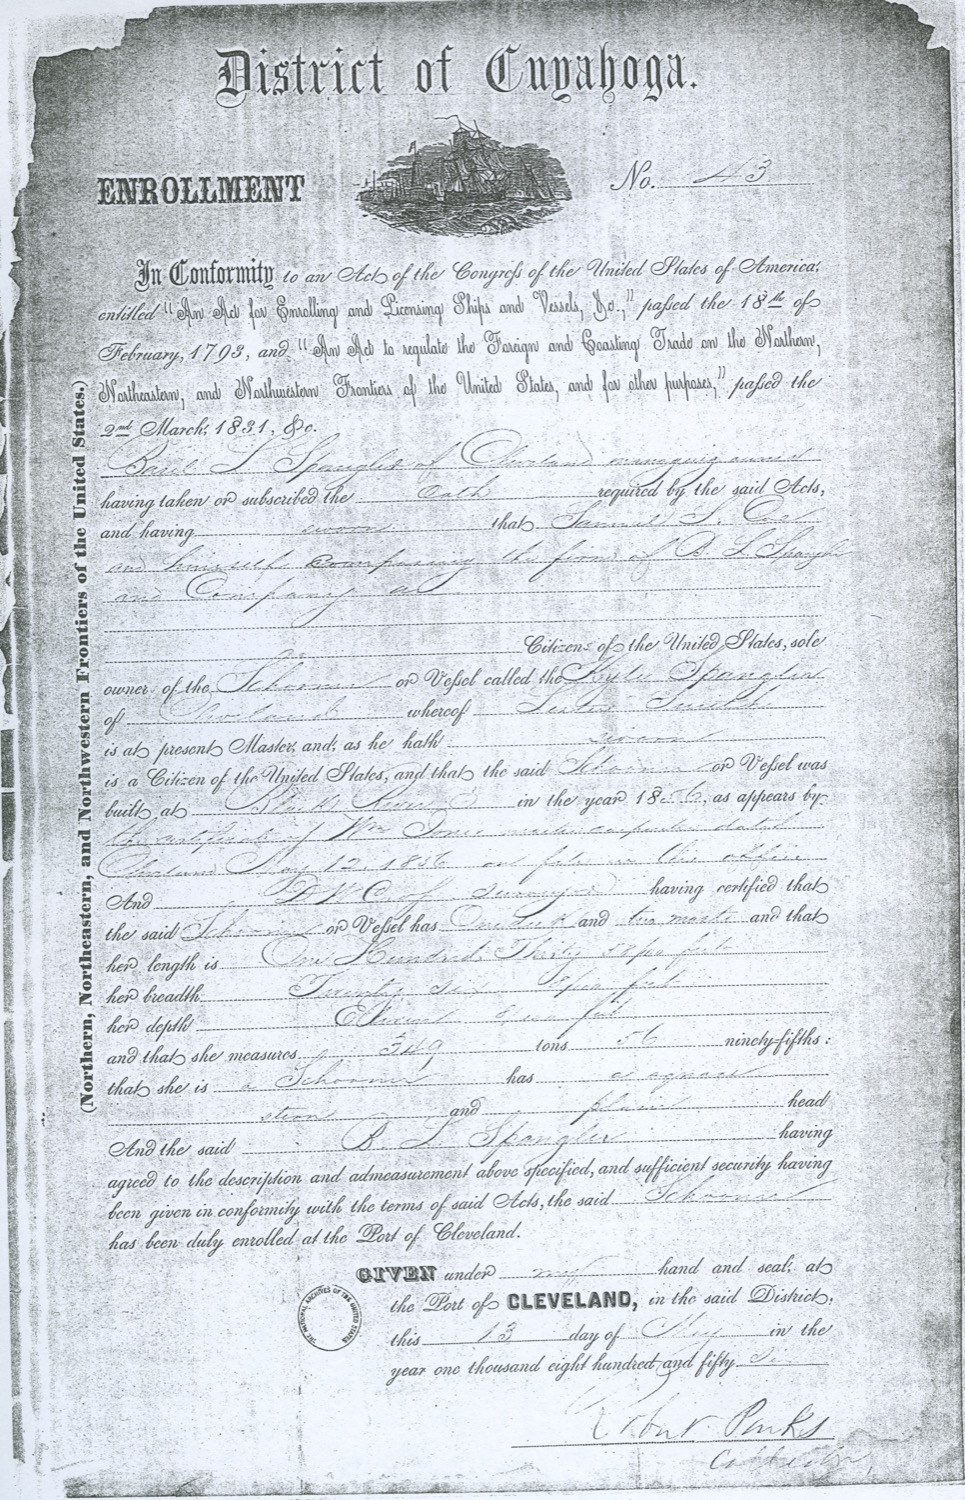 District of Cuyahoga.
ENROLLMENT
No. 43
In Conformity to an Act of the Congress of the United States of America,
entitled "An Act for Enrolling and Licensing Ships and Vessels, &c.," passed the 18th of
February, 1793, and "An Act to regulate the Foreign and Coasting Trade on the Northern,
Northeastern, and Northwestern Frontiers of the United States, and for other purposes," passed the
2nd March, 1831, &c.
Basil L Spangler of Cleveland managing owner
having taken or subscribed the oath required by the said Acts,
and having sworn that Samuel S. Coe
and himself composing the firm of B. L. Spangler
and Company are
Citizens of the United States, sole
owner of the Schooner or Vessel called the Kyle Spangler
of Cleveland whereof Smith
is at present Master, and, as he hath sworn
is a Citizen of the United States, and that the said Schooner or Vessel was
built at Black River O in the year 1856, as appears by
the certificate of Wm Jones master carpenter dated
Cleveland May 12, 1856 on file in this office
And surveyor having certified that
the said Schooner or Vessel has One deck and two masts and that
her length is One Hundred Thirty feet
her breadth Twenty six feet
her depth Eleven feet
and that she measures 349 tons 56 ninety-fifths:
that she is a Schooner has a square
stern and plain head
And the said B. L. Spangler having
agreed to the description and admeasurement above specified, and sufficient security having
been given in conformity with the terms of said Acts, the said Schooner
has been duly enrolled at the Port of Cleveland.
GIVEN under my hand and seal, at
the Port of CLEVELAND, in the said District,
this 13 day of May in the
year one thousand eight hundred and fifty Six
Robert Parks
Collector
(Northern, Northeastern, and Northwestern Frontiers of the United States.)
THE NATIONAL ARCHIVES OF THE UNITED STATES